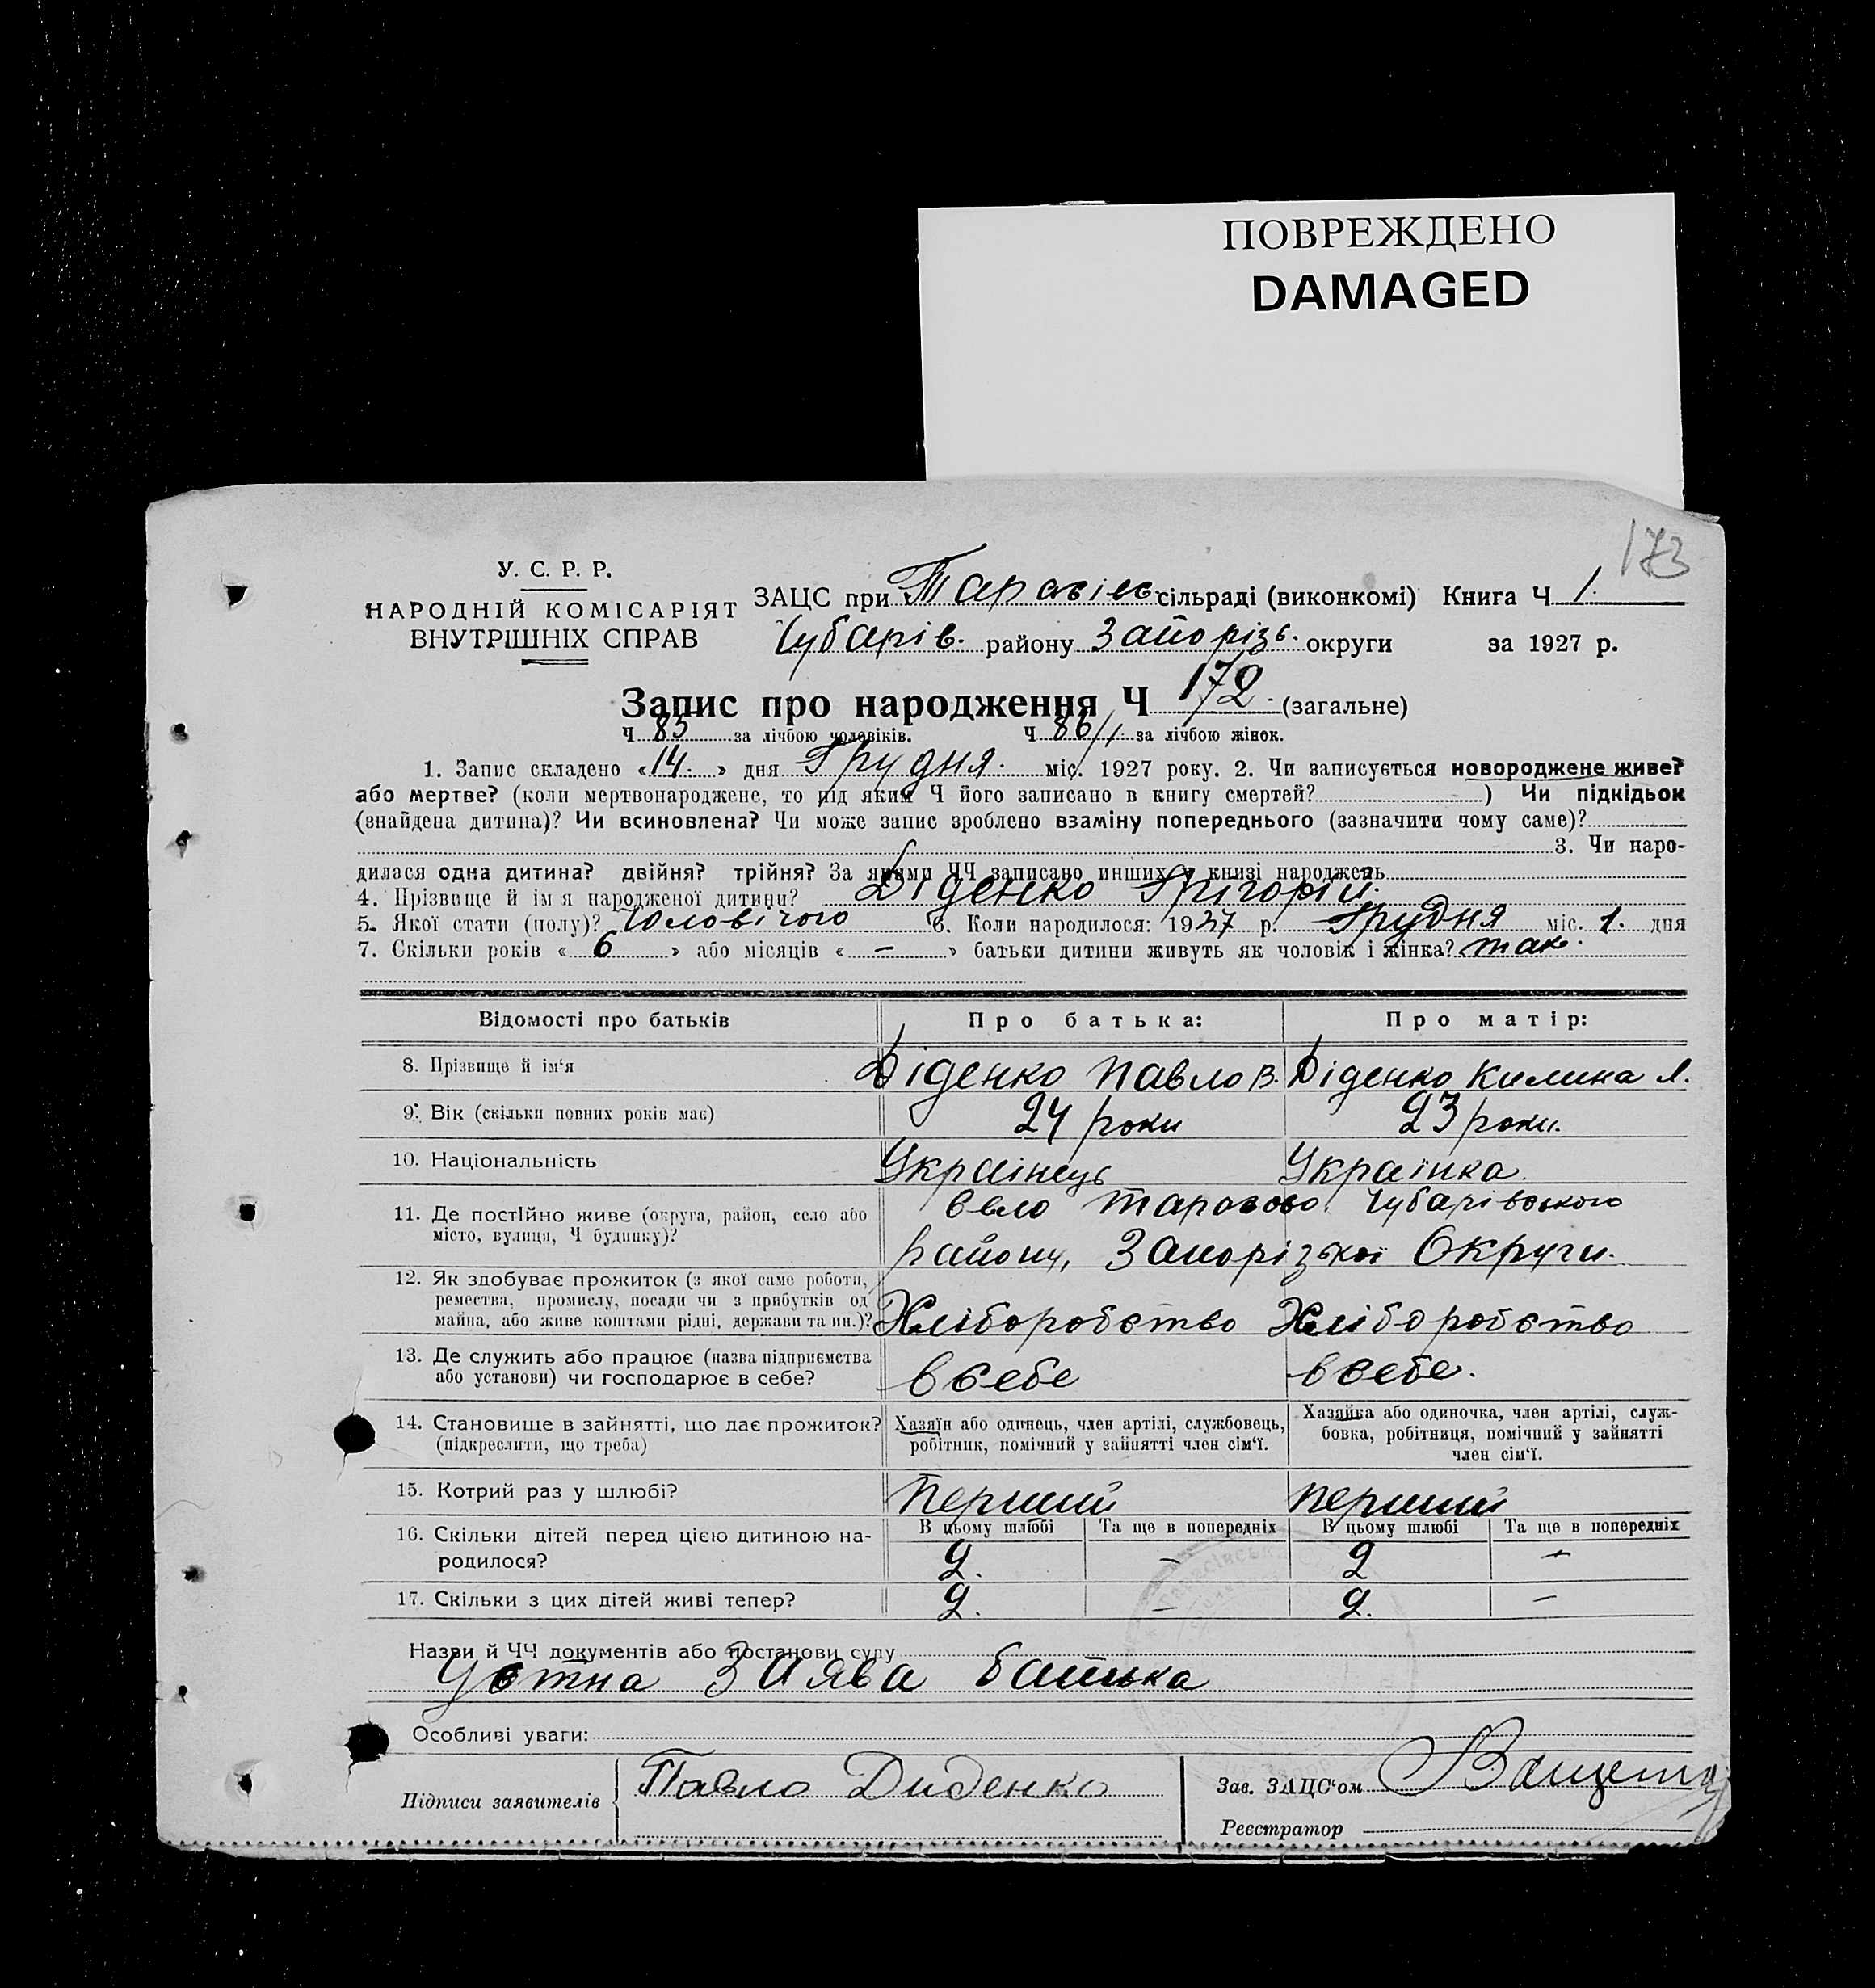 ПОВРЕЖДЕНО
DAMAGED
173
У. С. Р. Р.
НАРОДНІЙ КОМІСАРІЯТ
ВНУТРІШНІХ СПРАВ
ЗАЦС при Тарасівс сільраді (виконкомі) Книга Ч 1.
Чубарів. району Запорізь. округи за 1927 р.
Запис про народження Ч 172. (загальне)
Ч 85 за лічбою чоловіків. Ч 86/1 за лічбою жінок.
1. Запис складено «14.» дня Грудня. міс. 1927 року. 2. Чи записується новороджене живе?
або мертве? (коли мертвонароджене, то під яким Ч його записано в книгу смертей? ) Чи підкідьок
(знайдена дитина)? Чи всиновлена? Чи може запис зроблено взаміну попереднього (зазначити чому саме)?
3. Чи наро-
дилася одна дитина? двійня? трійня? За якими ЧЧ записано инших у книзі народжень
4. Прізвище й ім я народженої дитини? Діденко Григорій.
5. Якої стати (полу)? Чоловічого 6. Коли народилося: 1927 р. Грудня міс. 1. дня
7. Скільки років « 6 » або місяців « – » батьки дитини живуть як чоловік і жінка? так.
Відомості про батьків Про батька: Про матір:
8. Прізвище й ім'я Діденко Павло В. Діденко Килина Л.
9. Вік (скільки повних років має) 24 роки 23 роки.
10. Національність Українець Українка
11. Де постійно живе (округа, район, село або
місто, вулиця, Ч будинку)?
Село Тарасово Чубарівського
району, Запорізької Округи.
12. Як здобуває прожиток (з якої саме роботи,
ремества, промислу, посади чи з прибутків од
майна, або живе коштами рідні, держави та ин.)? Хліборобство Хліборобство
13. Де служить або працює (назва підприємства
або установи) чи господарює в себе? в себе в себе.
14. Становище в зайнятті, що дає прожиток?
(підкреслити, що треба)
Хазяїн або одинець, член артілі, службовець,
робітник, помічний у зайнятті член сім'ї.
Хазяйка або одиночка, член артілі, служ-
бовка, робітниця, помічний у зайнятті
член сім'ї.
15. Котрий раз у шлюбі? Перший перший
16. Скільки дітей перед цією дитиною на-
родилося?
В цьому шлюбі Та ще в попередніх В цьому шлюбі Та ще в попередніх
2. – 2 –
17. Скільки з цих дітей живі тепер? 2. – 2. –
Назви й ЧЧ документів або постанови суду
Устна заява батька
Особливі уваги:
Підписи заявителів Павло Диденко
Зав. ЗАЦС'ом
Реєстратор